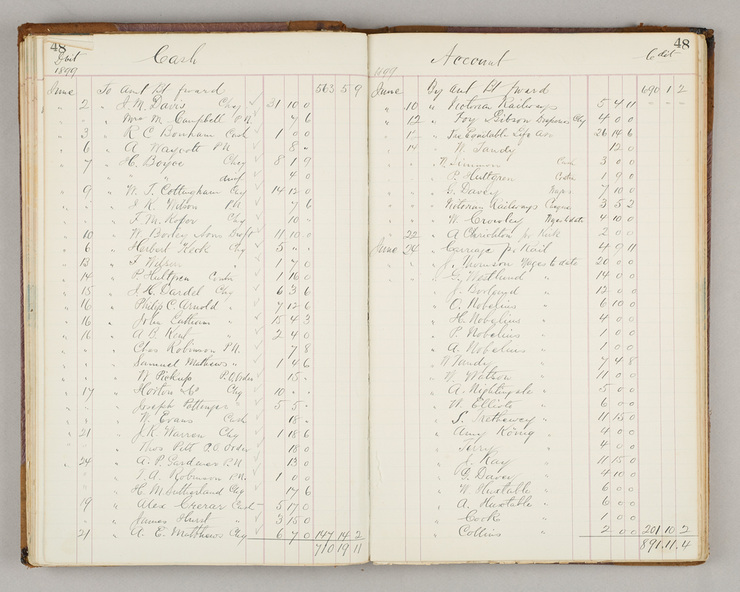 48
Debit
1899
Cash
June To amt bt forward 563 5 9
2 J. M. Davis Chq 21 10 0
Mrs M. Campbell P.N. 7 6
3 R C Bonham Cash 1 0 0
6 A Waycott P.N. 8 -
7 H. Boyce Chq 8 1 9
" 4 0
9 W. T. Cottingham Chq 14 12 0
J. K. Wilson P.N. 7 6
T. M. Chq 10 -
10 W. Borley Sons Draft 11 10 0
6 Herbert Keck Chq 5 " -
13 T Wilson " 1 7 0
14 P. Hultgren 1 16 0
15 J. H. Dardel Chq 6 3 6
16 Philip C Arnold " 7 12 6
16 John " 15 4 3
16 A B " 2 4 0
" Chas Robinson P.N. 7 8
Samuel Mathews " 1 4 6
W. Pickup P.O. Order 15 -
17 Horton & Co Chq 10 -
Joseph Pottenger " 5 5 -
W. Evans Cash 18 -
21 J. K. Warren Chq 1 18 6
Thos Pett P.O. Order 18 0
24 A. P. Gardener P.N. 13 0
J. A. Robinson P.N. 1 0 0
H. M. Sutherland Chq 17 6
19 Alex Cash 5 17 0
James Hurst " 3 15 0
21 A. E. Matthews Chq 6 7 0 147 14 2
710 19 11
48
Account
Credit
1899
June By amt bt forward 690 1 2
10 " Victorian Railways 5 4 11
12 " Foy Gibson Chq 4 0 0
12 " The Equitable Life Ass 26 14 6
14 " W. Tandy 12 0
" N. Simmons Cash 3 0 0
" P. Hultgren 1 9 0
" G. Davey Wages 7 10 0
" Victorian Railways 3 5 2
" W. Crowley Wages to date 4 10 0
22 " A Chrichton p. Keck 2 0 0
June 24 " Carriage p. Rail 4 9 11
" J. Thomson Wages to date 20 0 0
" G. Westlund " 14 0 0
" J. " 12 0 0
" O. Nobelius " 6 10 0
" H. Nobelius " 4 0 0
" P. Nobelius " 1 0 0
" A. Nobelius " 1 0 0
" W Tandy " 7 4 8
" W. Watson " 11 0 0
" A. Nightingale " 5 0 0
" W. Elliott " 6 0 0
" S. Tretheway " 11 15 0
" Amy König " 4 0 0
" Terry " 4 0 0
" J. Kay " 11 15 0
" G. Davey " 4 10 0
" W Huxtable " 6 0 0
" A. Huxtable " 6 0 0
" Cook " 1 0 0
" Collins " 2 0 0 201 10 2
891 11 4